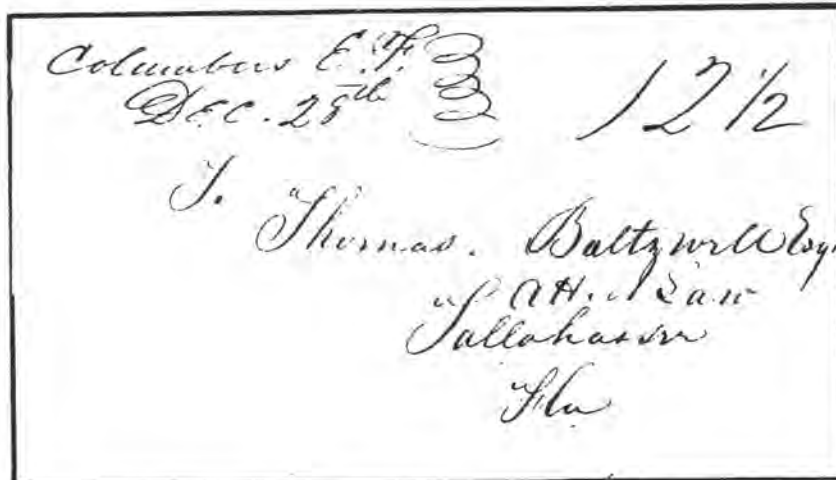 Columbus E.F. 12 1/2
Dec. 25th
T.
Thomas. Baltzwell Esqr
Att. Law
Tallahassee
Fla